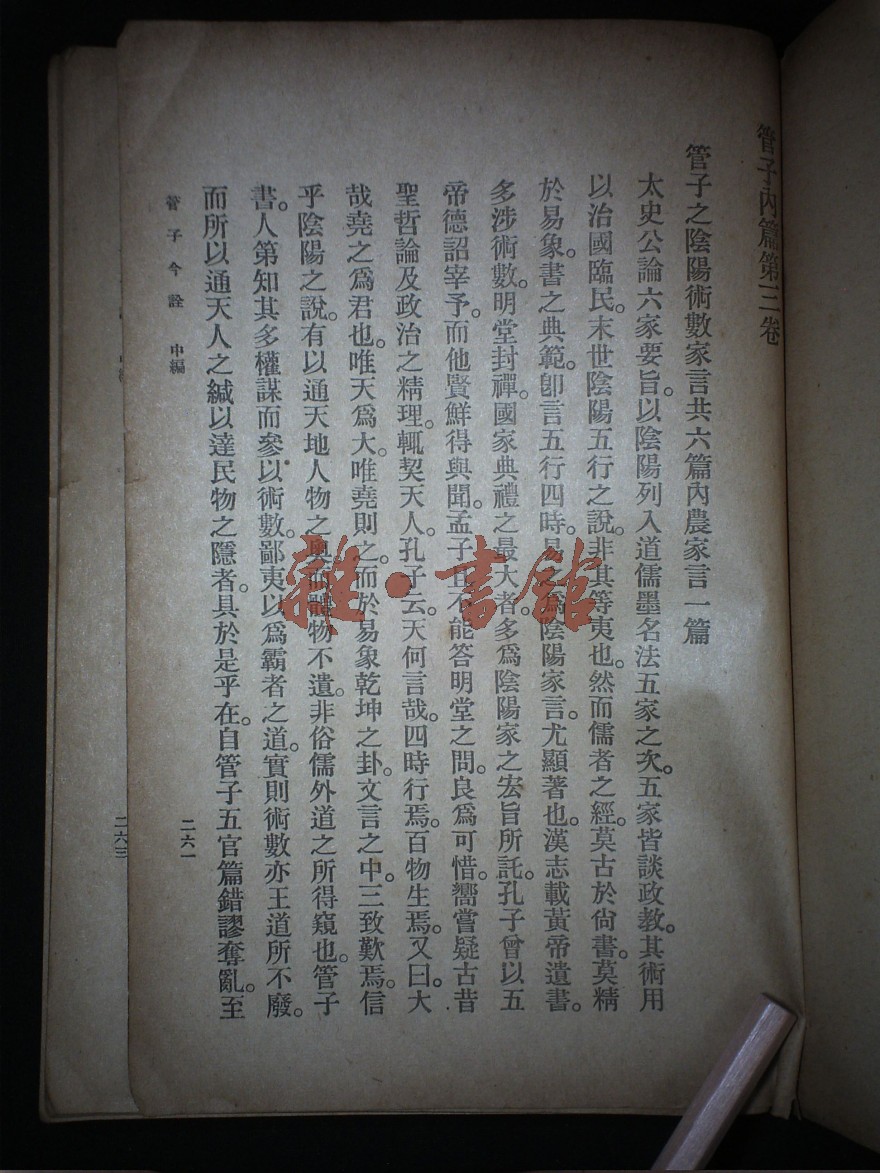 管子內篇第三卷
管子之陰陽術數家言共六篇內農家言一篇
太史公論六家要旨。以陰陽列入道儒墨名法五家之次。五家皆談政教。其術用
以治國臨民。末世陰陽五行之說。非其等夷也。然而儒者之經。莫古於尙書。莫精
於易象。書之典範。卽言五行四時。易之爲陰陽家言。尤顯著也。漢志載黃帝遺書。
多涉術數。明堂封禪。國家典禮之最大者。多爲陰陽家之宏旨所託。孔子曾以五
帝德詔宰予。而他賢鮮得與聞。孟子且不能答明堂之問。良爲可惜。嚮嘗疑古昔
聖哲論及政治之精理。輒契天人。孔子云。天何言哉。四時行焉。百物生焉。又曰。大
哉堯之爲君也。唯天爲大。唯堯則之。而於易象乾坤之卦。文言之中。三致歎焉。信
乎陰陽之說。有以通天地人物之奧。而體物不遺。非俗儒外道之所得窺也。管子
書。人第知其多權謀而參以術數。鄙夷以爲霸者之道。實則術數亦王道所不廢。
而所以通天人之緘以達民物之隱者。具於是乎在。自管子五官篇錯謬奪亂。至
管子今詮 中編
二六一
二六三
雜·書館